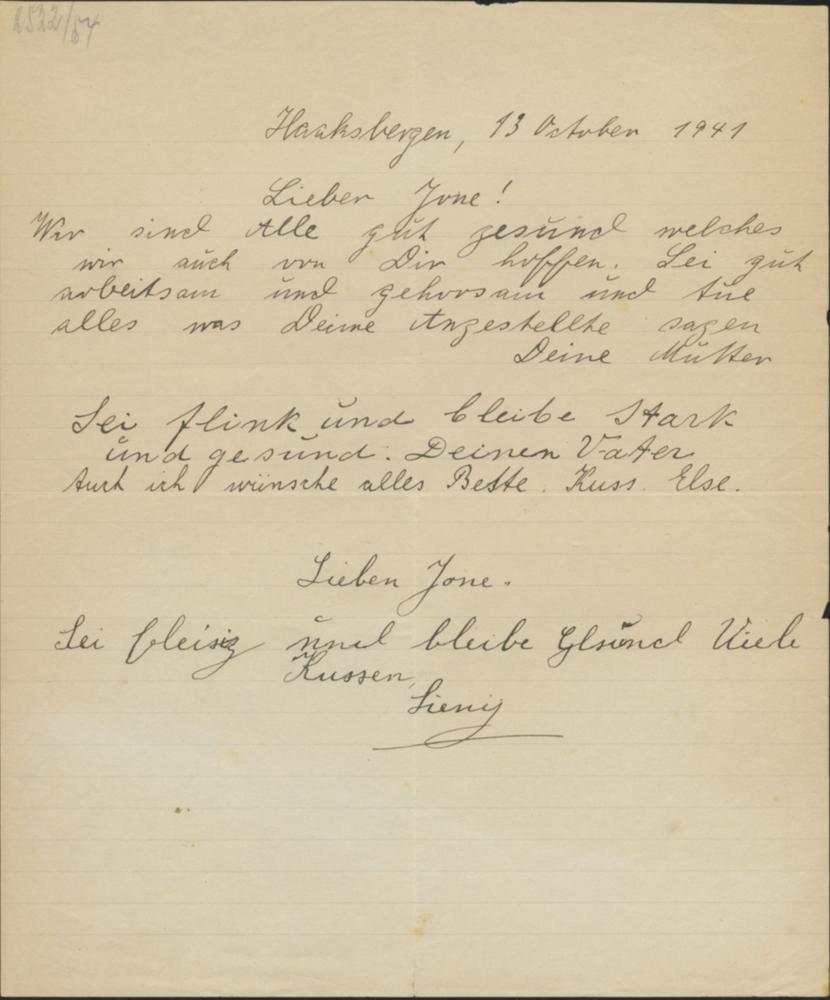 2522/57
Haaksbergen, 13 October 1941
Lieber Jone!
Wir sind Alle gut gesund welches
wir auch von Dir hoffen. Sei gut
arbeitsam und gehorsam und tue
alles was Deine Angestellte sagen
Deine Mutter
Sei flink und bleibe Stark
und gesund. Deinen Vater
Auch ich wünsche alles Beste. Kuss. Else.
Lieben Jone.
Sei fleisig und bleibe Gesund Viele
Kussen,
Sieny